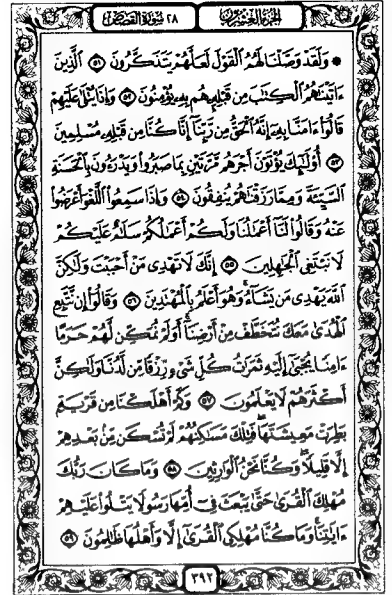 الجزء العشرون ٢٨ سورة القصص
وَلَقَدْ وَصَّلْنَا لَهُمُ الْقَوْلَ لَعَلَّهُمْ يَتَذَكَّرُونَ ۝٥١ الَّذِينَ
ءَاتَيْنَاهُمُ الْكِتَابَ مِن قَبْلِهِ هُم بِهِ يُؤْمِنُونَ ۝٥٢ وَإِذَا يُتْلَىٰ عَلَيْهِمْ
قَالُوا ءَامَنَّا بِهِ إِنَّهُ الْحَقُّ مِن رَّبِّنَا إِنَّا كُنَّا مِن قَبْلِهِ مُسْلِمِينَ
۝٥٣ أُولَٰئِكَ يُؤْتَوْنَ أَجْرَهُم مَّرَّتَيْنِ بِمَا صَبَرُوا وَيَدْرَءُونَ بِالْحَسَنَةِ
السَّيِّئَةَ وَمِمَّا رَزَقْنَاهُمْ يُنفِقُونَ ۝٥٤ وَإِذَا سَمِعُوا اللَّغْوَ أَعْرَضُوا
عَنْهُ وَقَالُوا لَنَا أَعْمَالُنَا وَلَكُمْ أَعْمَالُكُمْ سَلَامٌ عَلَيْكُمْ
لَا نَبْتَغِي الْجَاهِلِينَ ۝٥٥ إِنَّكَ لَا تَهْدِي مَنْ أَحْبَبْتَ وَلَٰكِنَّ
اللَّهَ يَهْدِي مَن يَشَاءُ وَهُوَ أَعْلَمُ بِالْمُهْتَدِينَ ۝٥٦ وَقَالُوا إِن نَّتَّبِعِ
الْهُدَىٰ مَعَكَ نُتَخَطَّفْ مِنْ أَرْضِنَا أَوَلَمْ نُمَكِّن لَّهُمْ حَرَمًا
ءَامِنًا يُجْبَىٰ إِلَيْهِ ثَمَرَاتُ كُلِّ شَيْءٍ رِّزْقًا مِّن لَّدُنَّا وَلَٰكِنَّ
أَكْثَرَهُمْ لَا يَعْلَمُونَ ۝٥٧ وَكَمْ أَهْلَكْنَا مِن قَرْيَةٍ
بَطِرَتْ مَعِيشَتَهَا فَتِلْكَ مَسَاكِنُهُمْ لَمْ تُسْكَن مِّن بَعْدِهِمْ
إِلَّا قَلِيلًا وَكُنَّا نَحْنُ الْوَارِثِينَ ۝٥٨ وَمَا كَانَ رَبُّكَ
مُهْلِكَ الْقُرَىٰ حَتَّىٰ يَبْعَثَ فِي أُمِّهَا رَسُولًا يَتْلُوا عَلَيْهِمْ
ءَايَاتِنَا وَمَا كُنَّا مُهْلِكِي الْقُرَىٰ إِلَّا وَأَهْلُهَا ظَالِمُونَ ۝٥٩
٣٩٢